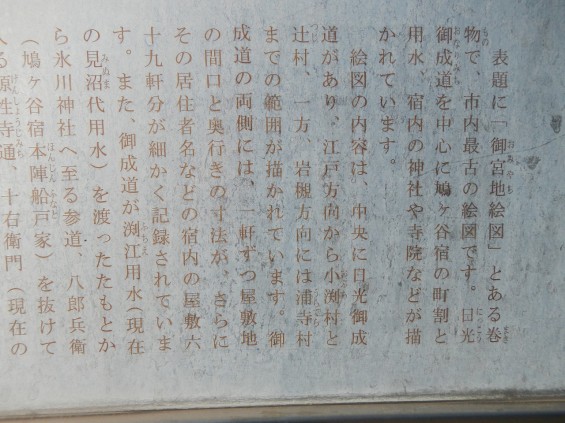 表題に「御宮地絵図」とある巻
物で、市内最古の絵図です。日光
御成道を中心に鳩ヶ谷宿の町割と
用水、宿内の神社や寺院などが描
かれています。
絵図の内容は、中央に日光御成
道があり、江戸方向から小渕村と
辻村、一方、岩槻方向には浦寺村
までの範囲が描かれています。御
成道の両側には、一軒ずつ屋敷地
の間口と奥行きの寸法が、さらに
その居住者名などの宿内の屋敷六
十九軒分が細かく記録されていま
す。また、御成道が渕江用水(現在
の見沼代用水)を渡ったたもとか
ら氷川神社へ至る参道、八郎兵衛
(鳩ヶ谷宿本陣船戸家)を抜けて
入る源性寺通、十右衛門(現在の